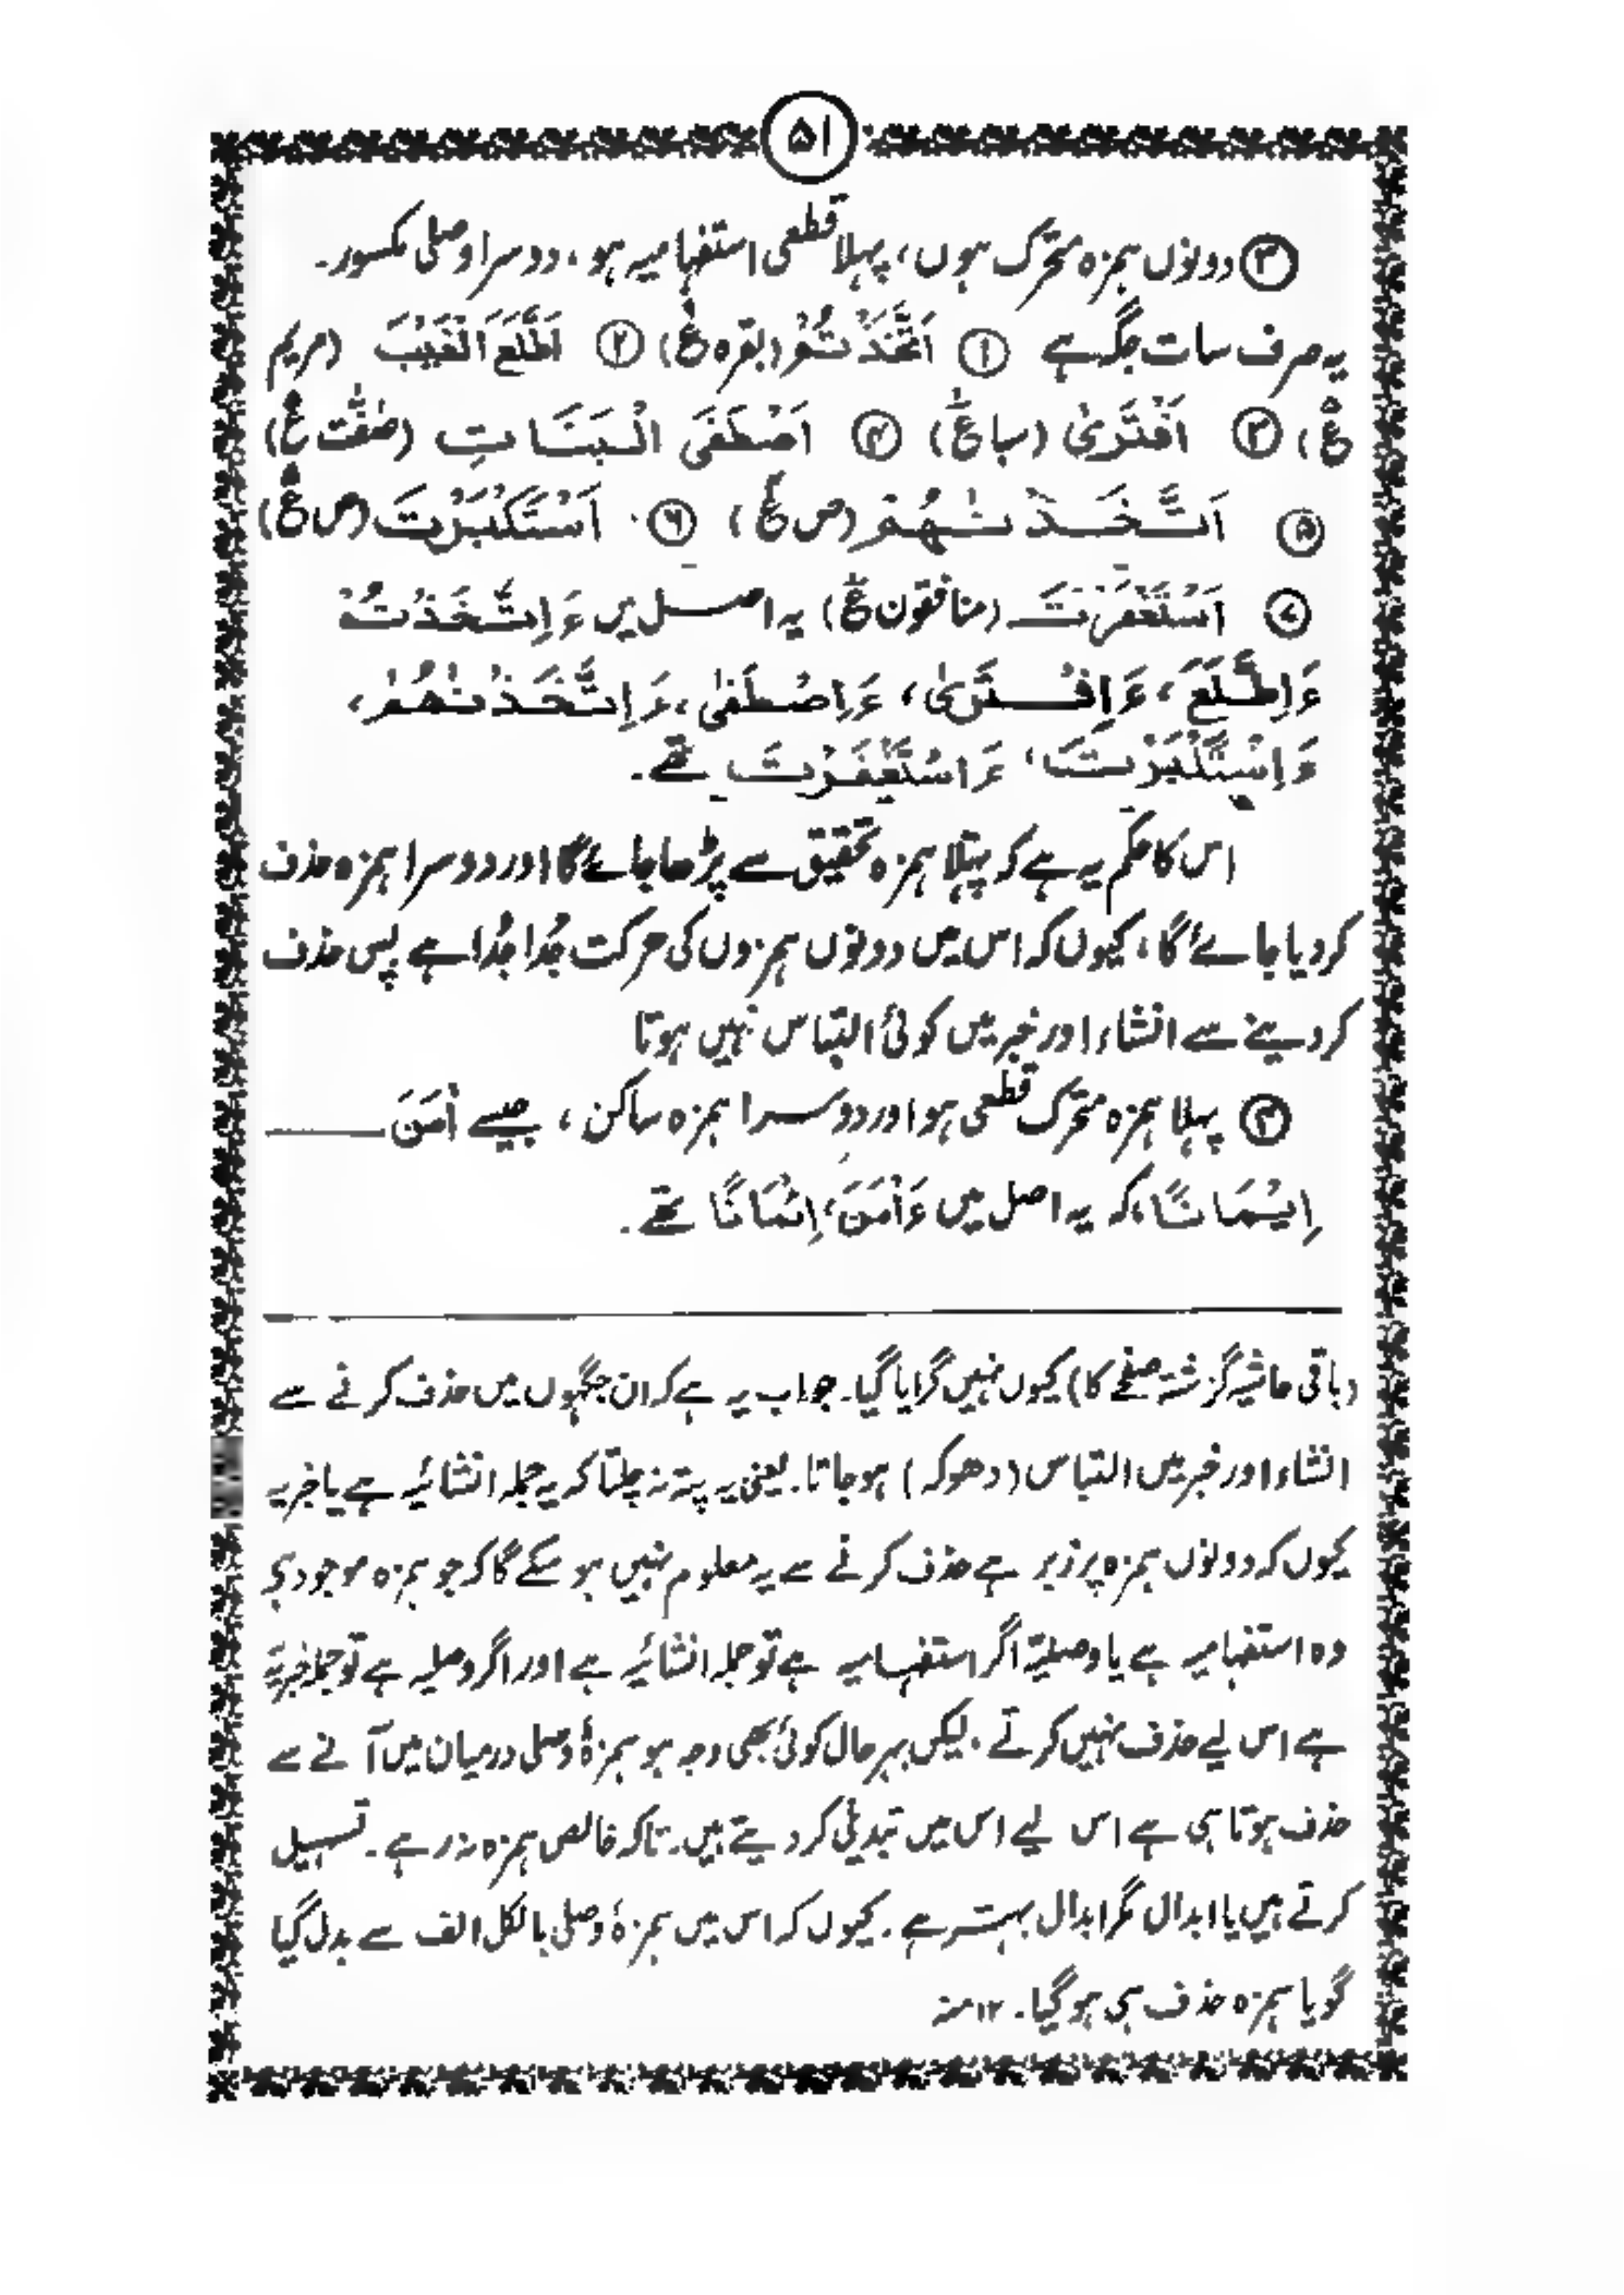 ۵۱
③ دونوں ہمزہ متحرک ہوں، پہلا قطعی استفہامیہ ہو، دوسرا وصلی مکسور۔
یہ صرف سات جگہ ہے ① اَتَّخَذْتُمْ (بقرہ ع) ② اَطَّلَعَ الْغَیْبَ (مریم
ع) ③ اَفْتَرٰی (سبا ع) ④ اَصْطَفَی الْبَنَاتِ (صٰفّٰت ع)
⑤ اَتَّخَذْنٰهُمْ (ص ع) ⑥ اَسْتَكْبَرْتَ (ص ع)
⑦ اَسْتَغْفَرْتَ (منافقون ع) یہ اصل میں ءَاِتَّخَذْتُمْ
ءَاِطَّلَعَ، ءَاِفْتَرٰی، ءَاِصْطَفٰی، ءَاِتَّخَذْنٰهُمْ،
ءَاِسْتَكْبَرْتَ، ءَاِسْتَغْفَرْتَ تھے۔
اس کا حکم یہ ہے کہ پہلا ہمزہ تحقیق سے پڑھا جائے گا اور دوسرا ہمزہ حذف
کر دیا جائے گا، کیوں کہ اس میں دونوں ہمزوں کی حرکت جُدا جُدا ہے پس حذف
کر دینے سے انشاء اور خبر میں کوئی التباس نہیں ہوتا
④ پہلا ہمزہ متحرک قطعی ہو اور دوسرا ہمزہ ساکن، جیسے اٰمَنَ ــــــ
اِیْمَانًا، کہ یہ اصل میں ءَاْمَنَ، اِئْمَانًا تھے۔
(باقی حاشیہ گزشتہ صفحے کا) کیوں نہیں گرایا گیا۔ جواب یہ ہے کہ ان جگہوں میں حذف کرنے سے
انشاء اور خبر میں التباس (دھوکہ) ہو جاتا۔ یعنی یہ پتہ نہ چلتا کہ یہ جملہ انشائیہ ہے یا خبریہ
کیوں کہ دونوں ہمزہ پر زبر ہے حذف کرنے سے یہ معلوم نہیں ہو سکے گا کہ جو ہمزہ موجود ہے
وہ استفہامیہ ہے یا وصلیہ اگر استفہامیہ ہے تو جملہ انشائیہ ہے اور اگر وصلیہ ہے تو جملہ خبریہ
ہے اس لیے حذف نہیں کرتے۔ لیکن بہر حال کوئی بھی وجہ ہو ہمزۂ وصلی درمیان میں آنے سے
حذف ہوتا ہی ہے اس لیے اس میں تبدیلی کر دیتے ہیں۔ تاکہ خالص ہمزہ نہ رہے۔ تسہیل
کرتے ہیں یا ابدال مگر ابدال بہتر ہے۔ کیوں کہ اس میں ہمزۂ وصلی بالکل الف سے بدل گیا
گویا ہمزہ حذف ہی ہو گیا۔ ۱۲ منہ